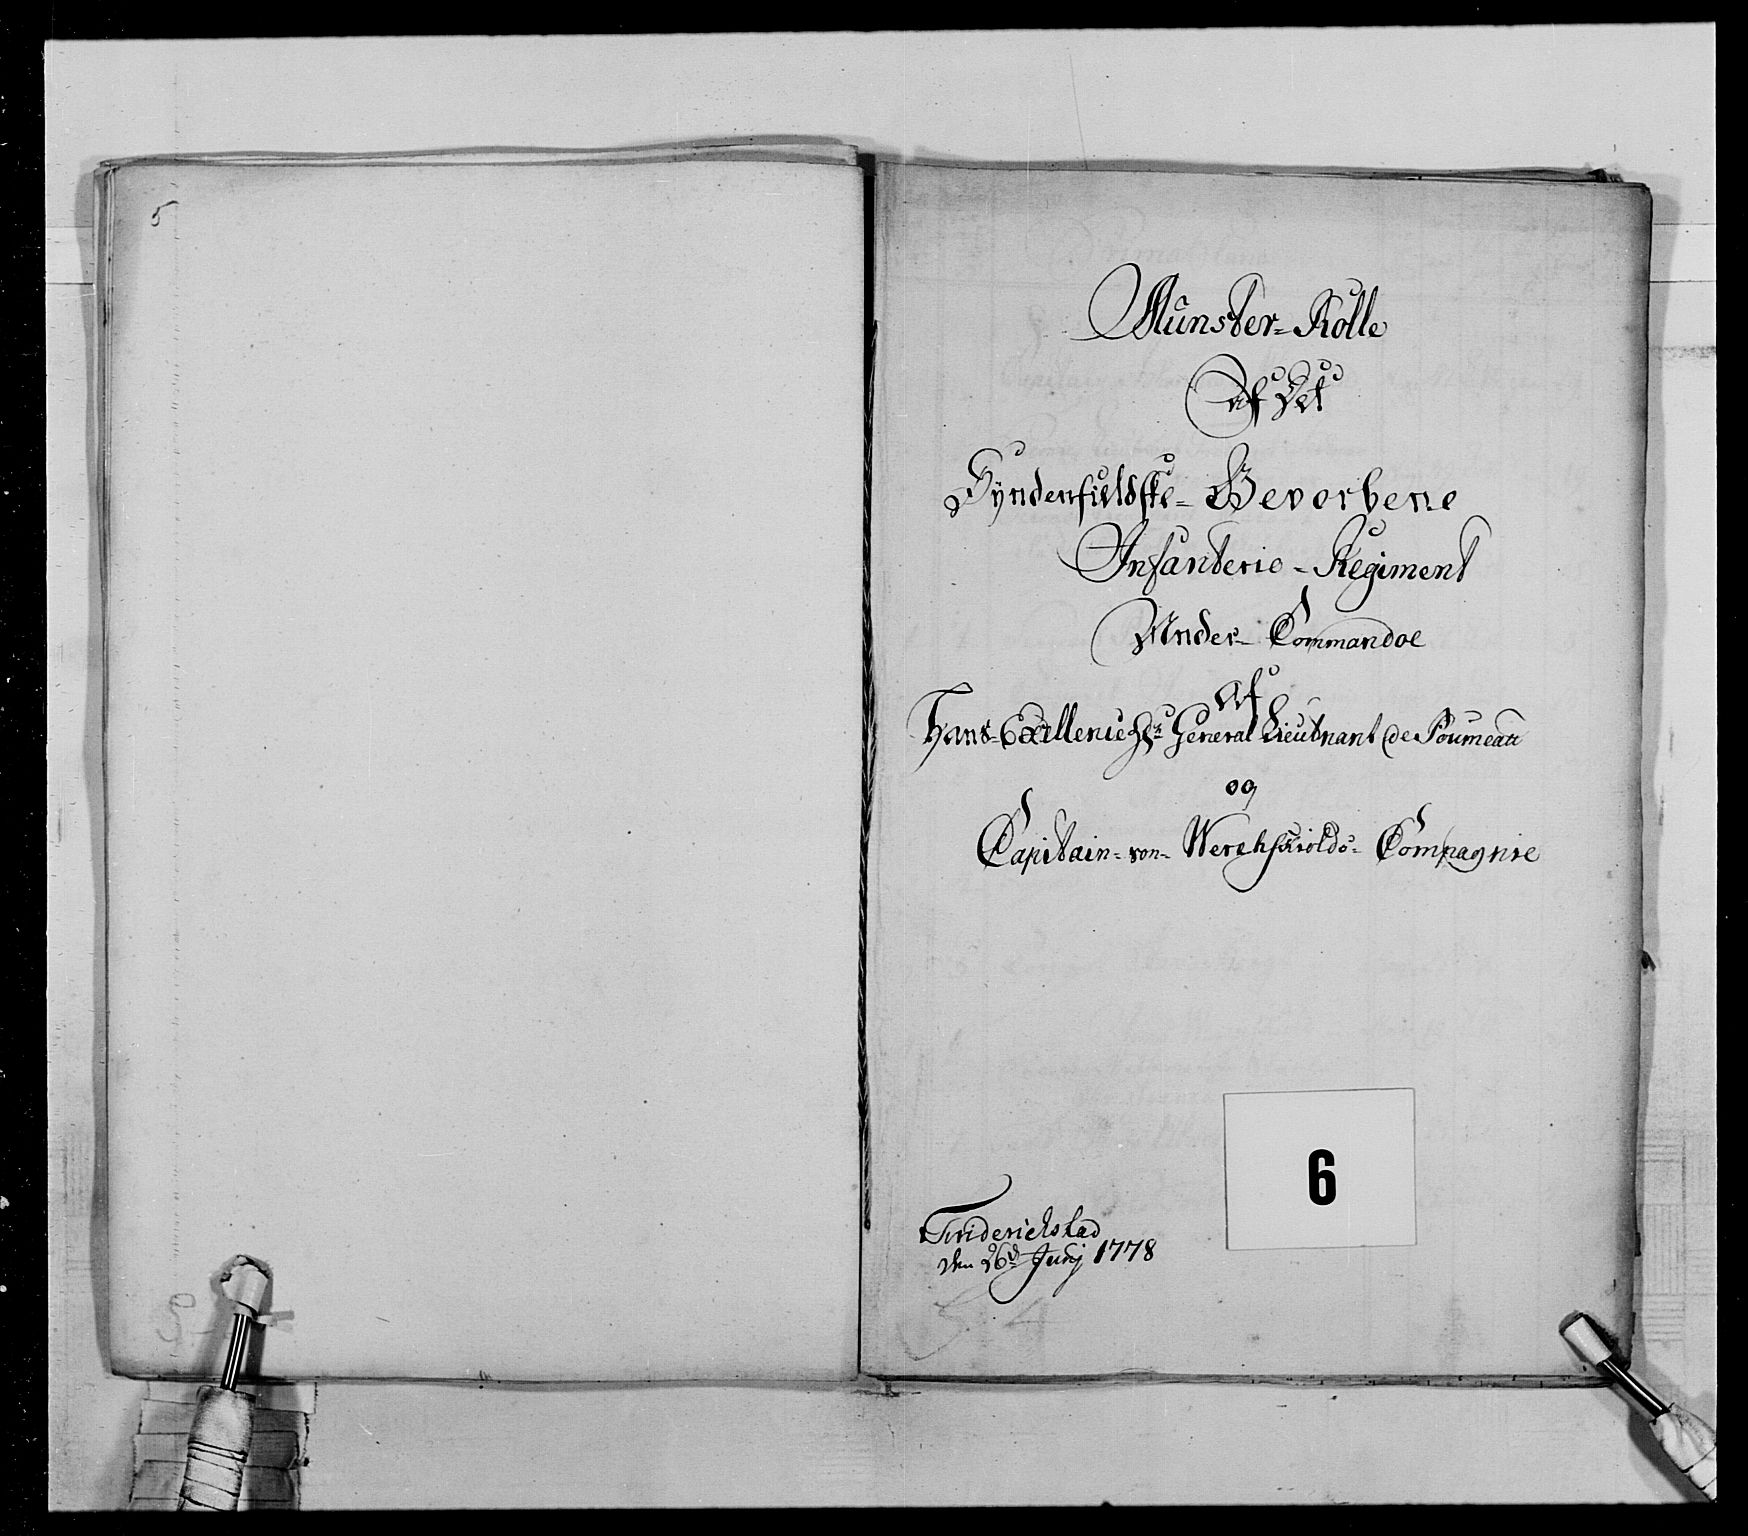 5
Münster-Rolle
Af Det
Syndenfieldske-Geverbene
Infanterie-Regiment
Under-Commandoe
Af
Hans-Excellence Hr. General Lieutnant de Poumeau
og
Capitain-von-Werchskiolds-Compagnie
6
Friderichstad
den 26d. Junj 1778